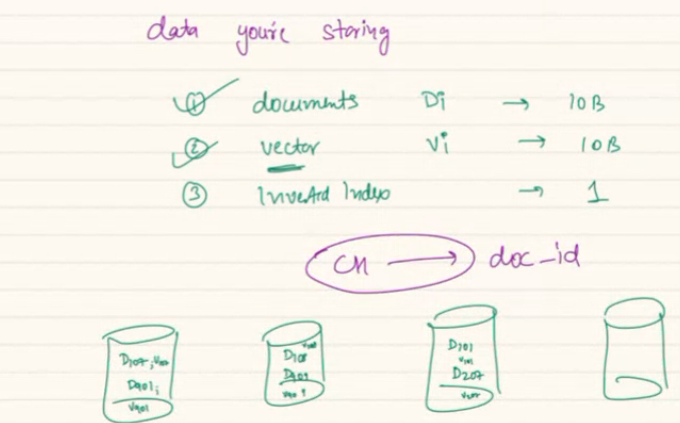 data you're storing
① documents Di → 10B
② vector Vi → 10B
③ Inverted Index → 1
CM → doc_id
D107, V107 D108 D101
D901; D909 V101
V901 D207